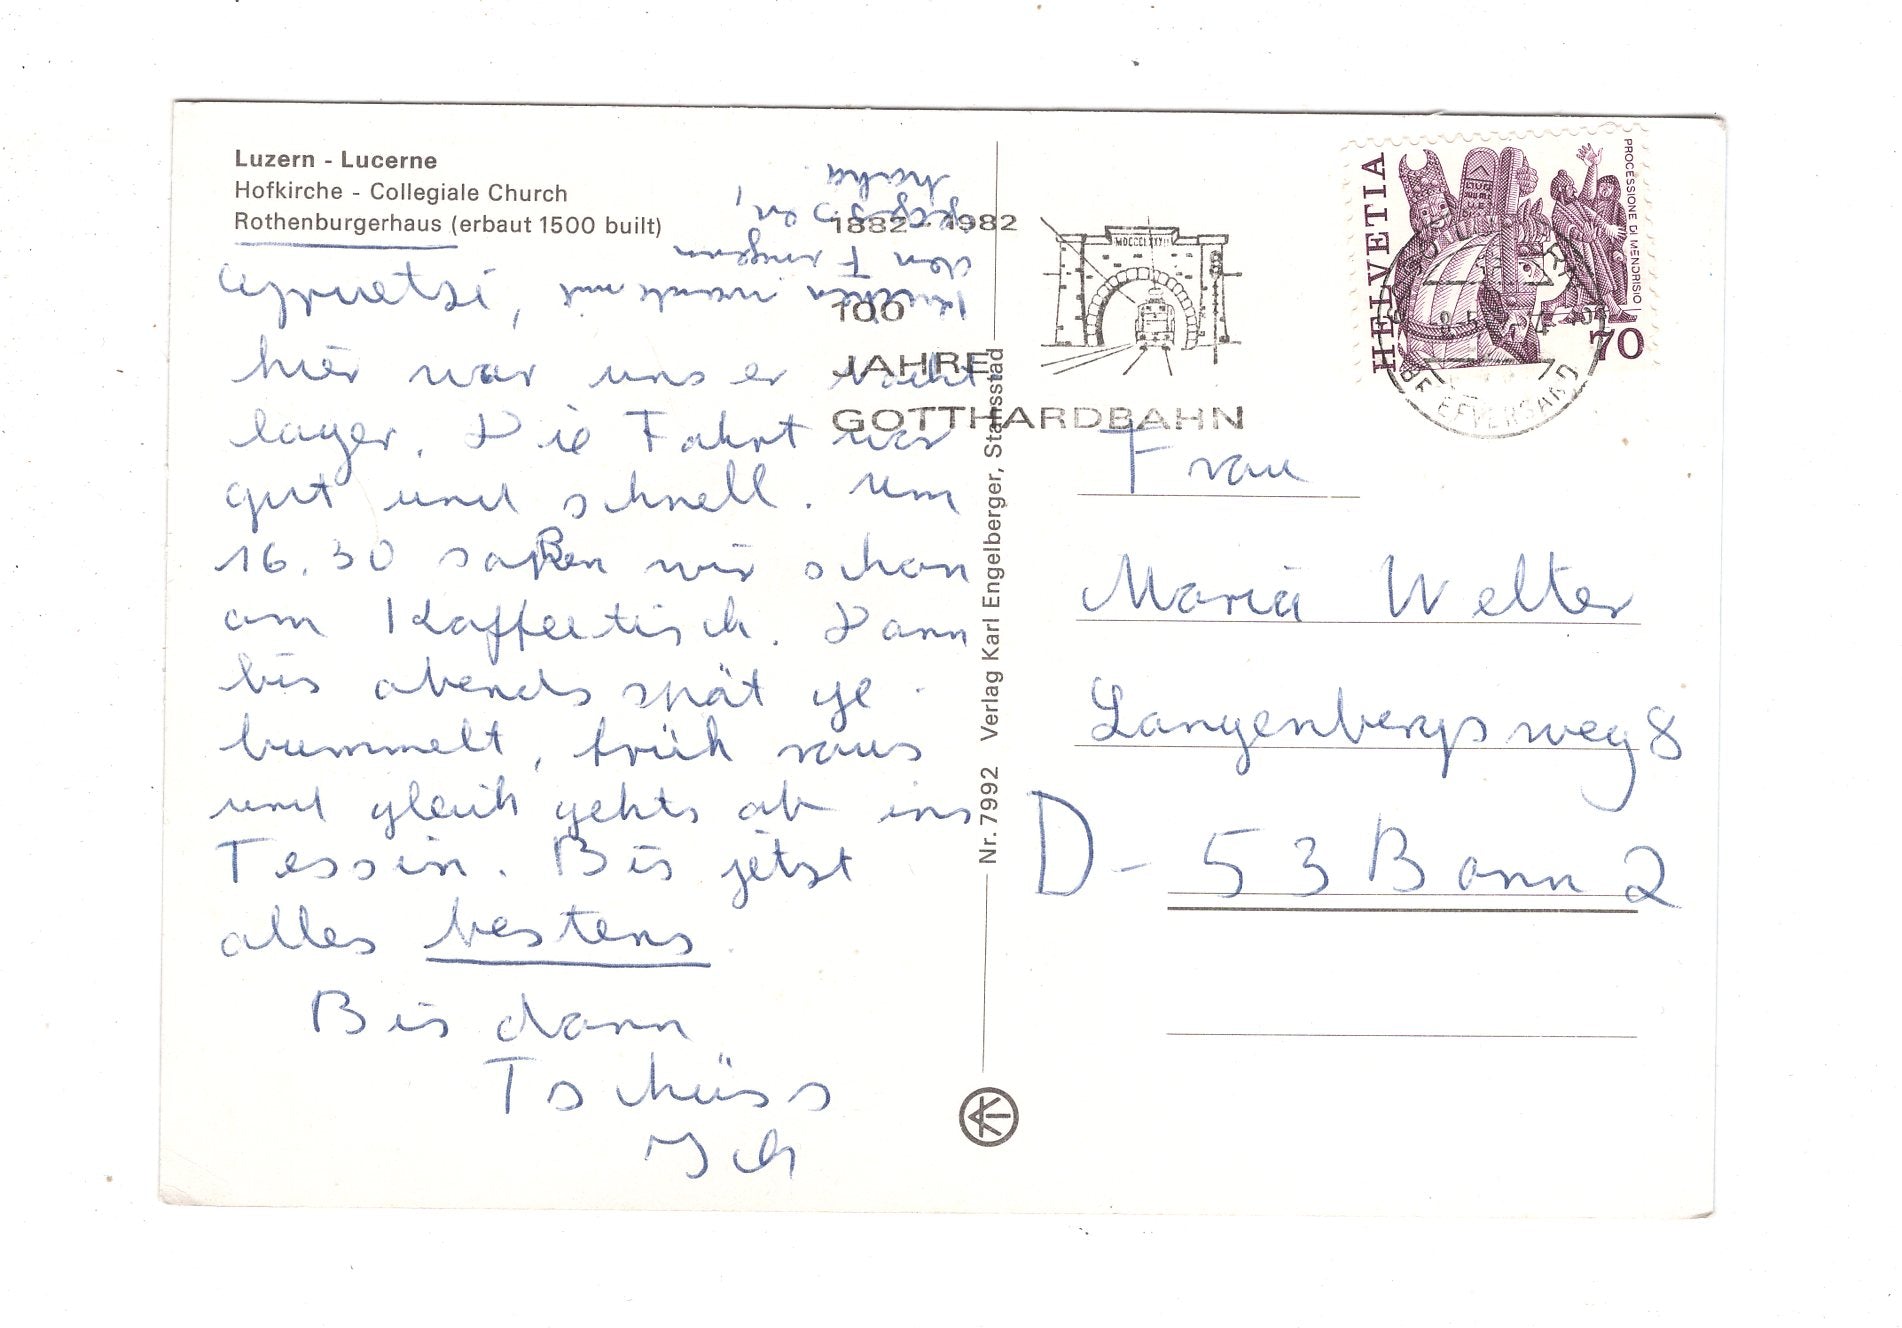 Luzern - Lucerne
Hofkirche - Collegiale Church
Rothenburgerhaus (erbaut 1500 built)
hier war unser Nacht
lager. Die Fahrt war
gut und schnell. Um
16.30 saßen wir schon
am Kaffeetisch. Dann
bis abends spät ge-
bummelt, früh raus
und gleich gehts ab ins
Tessin. Bis jetzt
alles bestens.
Bis dann
Tschüss
Ich
den Fingern
1882 - 1982
MDCCCLXXXII
100
JAHRE
GOTTHARDBAHN
HELVETIA
PROCESSIONE DI MENDRISIO
70
BRIEFVERSAND
Nr. 7992 Verlag Karl Engelberger, Stansstad
Frau
Maria Welter
Langenbergsweg 8
D- 53 Bonn 2